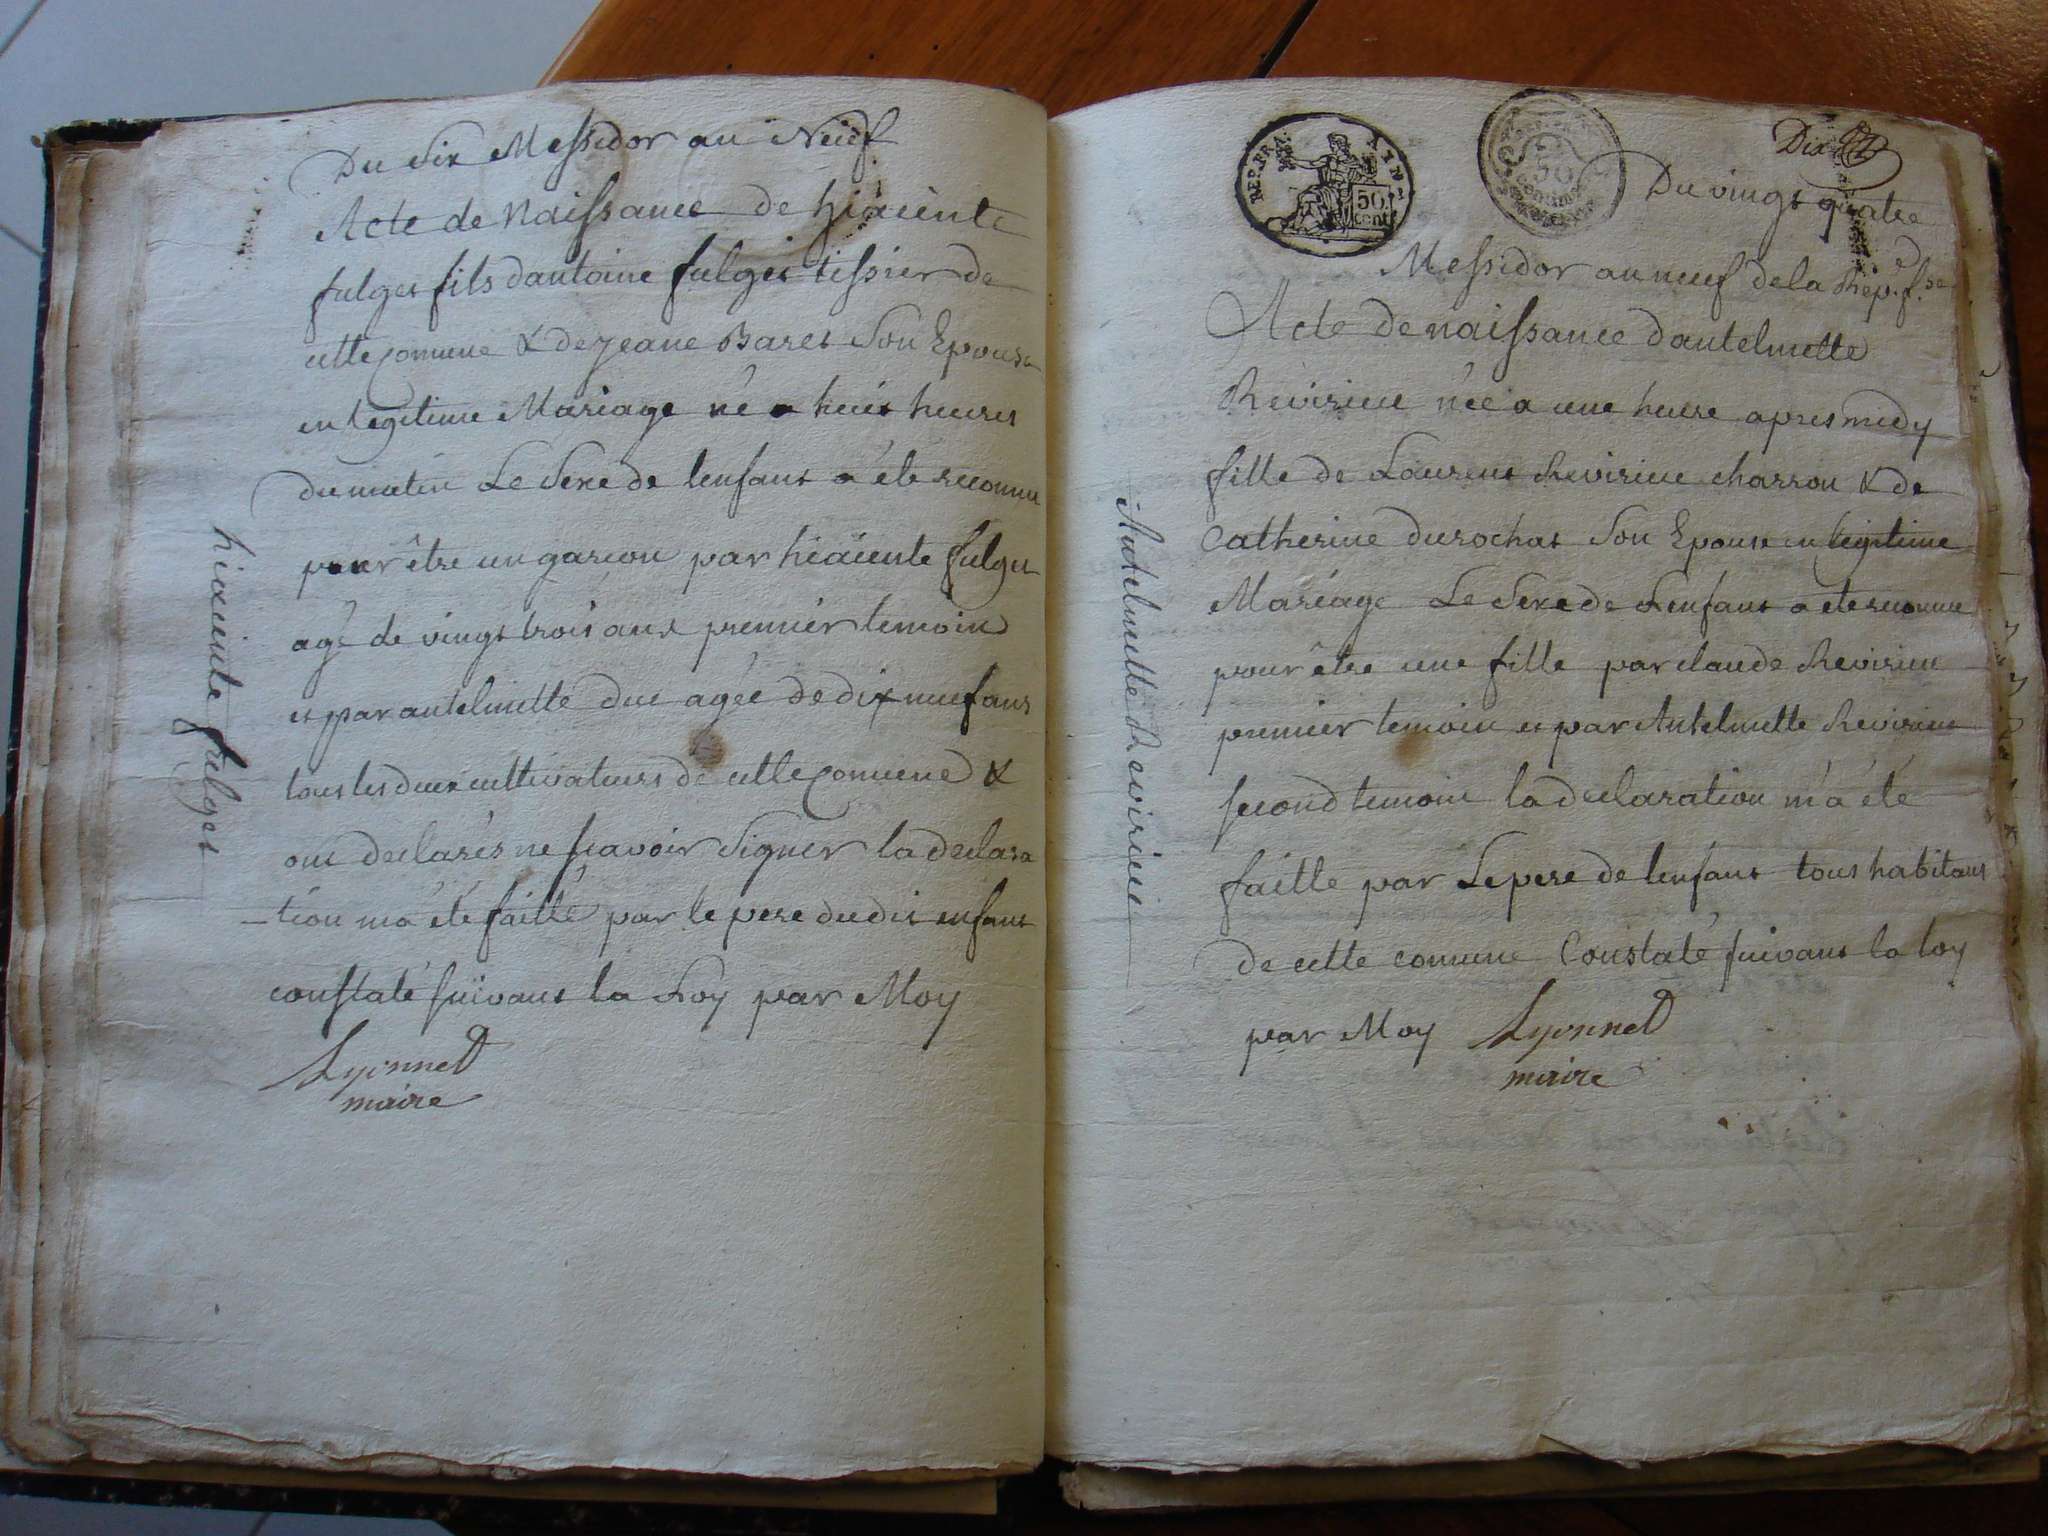 Du Six Messidor an Neuf
Acte de Naissance de hiaciente
fulget fils dantoine fulget tissier de
cette comune & de jeane Baret Son Epouse
en legitime Mariage né a huit heures
du matin Le Sexe de lenfant a été reconnu
pour être un garcon par hiaciente fulget
agé de vingt trois ans premier temoin
et par antelmette duc agée de dix neuf ans
tous les deux cultivateurs de cette comune &
ont declarés ne scavoir Signer la declara
tion m'a été faitte par le pere dudit enfant
constaté suivant la Loy par Moy
Lyonnet
maire
hiaciente fulget
REP. FRA
ATN
50
cent
50
Dix
Du vingt quatre
Messidor an neuf de la Rep. f.se
Acte de naissance dantelmette
Revirieu née a une heure apres midy
fille de Laurent Revirieu charron & de
Catherine durochat Son Epouse en legitime
Mariage Le Sexe de Lenfant a été reconnu
pour être une fille par claude Revirieu
premier temoin et par Antelmette Revirieu
second temoin la declaration m'a été
faitte par Le pere de lenfant tous habitans
de cette comune Constaté suivant la loy
par Moy Lyonnet
maire
Antelmette Revirieu